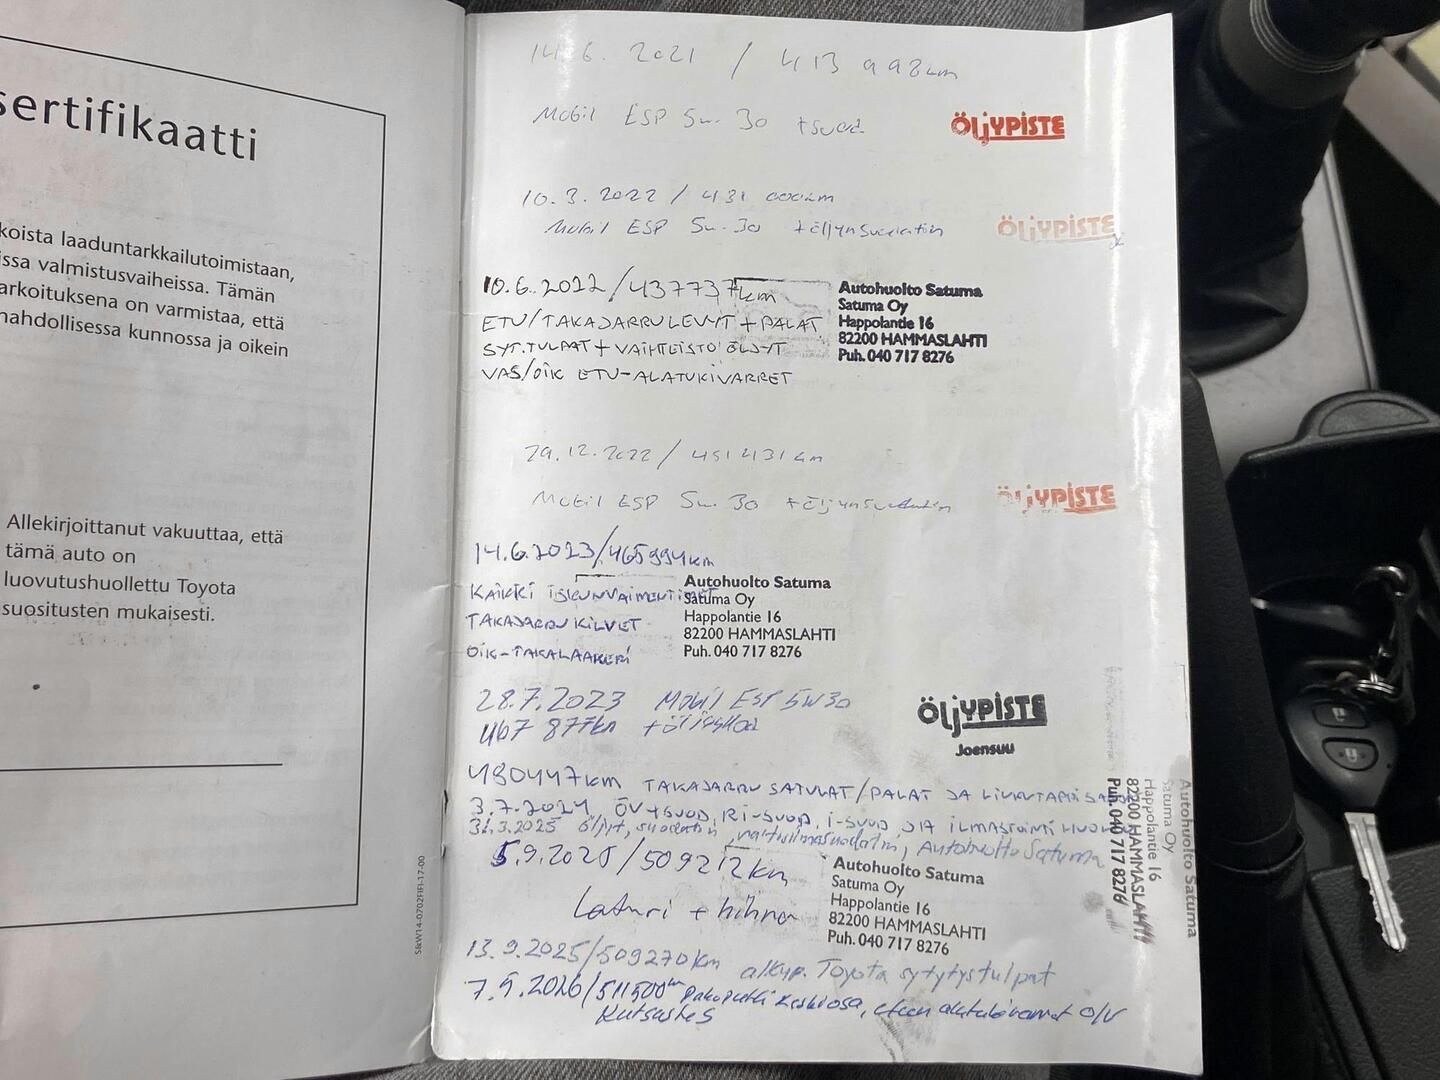 sertifikaatti
koista laaduntarkkailutoimistaan,
issa valmistusvaiheissa. Tämän
arkoituksena on varmistaa, että
mahdollisessa kunnossa ja oikein
Allekirjoittanut vakuuttaa, että
tämä auto on
luovutushuollettu Toyota
suositusten mukaisesti.
S&W14-0702FIFI-17-00
14.6. 2021 / 413 998km
Mobil ESP 5w-30 + suod.
ÖljYPISTE
10.3.2022 / 431 000km
Mobil ESP 5w-30 + öljynsuodatin
ÖljYPISTE
10.6.2022/437737km
ETU/TAKAJARRULEVYT + PALAT
SYT.TULPAT + VAIHTEISTOÖLJYT
VAS/OIK ETU-ALATUKIVARRET
Autohuolto Satuma
Satuma Oy
Happolantie 16
82200 HAMMASLAHTI
Puh. 040 717 8276
29.12.2022 / 451 431km
Mobil ESP 5w-30 + öljynsuodatin
ÖljYPISTE
14.6.2023/465994km
KAIKKI ISKUNVAIMENTIMET
TAKAJARRUKILVET
OIK-TAKALAAKERI
Autohuolto Satuma
Satuma Oy
Happolantie 16
82200 HAMMASLAHTI
Puh. 040 717 8276
28.7.2023 Mobil ESP 5W30
467 877km + öljysuod
ÖljYPISTE
Joensuu
480447km TAKAJARRU SATULAT/PALAT JA LIUKUTAPPISARJA
3.7.2024 ÖV+SUOD, RI-SUOD, I-SUOD JA ILMASTOINTIHUOLTO
31.3.2025 öljyt, suodatin, raitisilmasuodatin, Autohuolto Satuma
Autohuolto Satuma
Satuma Oy
Happolantie 16
82200 HAMMASLAHTI
Puh. 040 717 8276
5.9.2025/509212km
Laturi + hihna
Autohuolto Satuma
Satuma Oy
Happolantie 16
82200 HAMMASLAHTI
Puh. 040 717 8276
13.9.2025/509270km alkup. Toyota sytytystulpat
7.9.2026/511500km Pakoputki keskiosa, eteen O/V